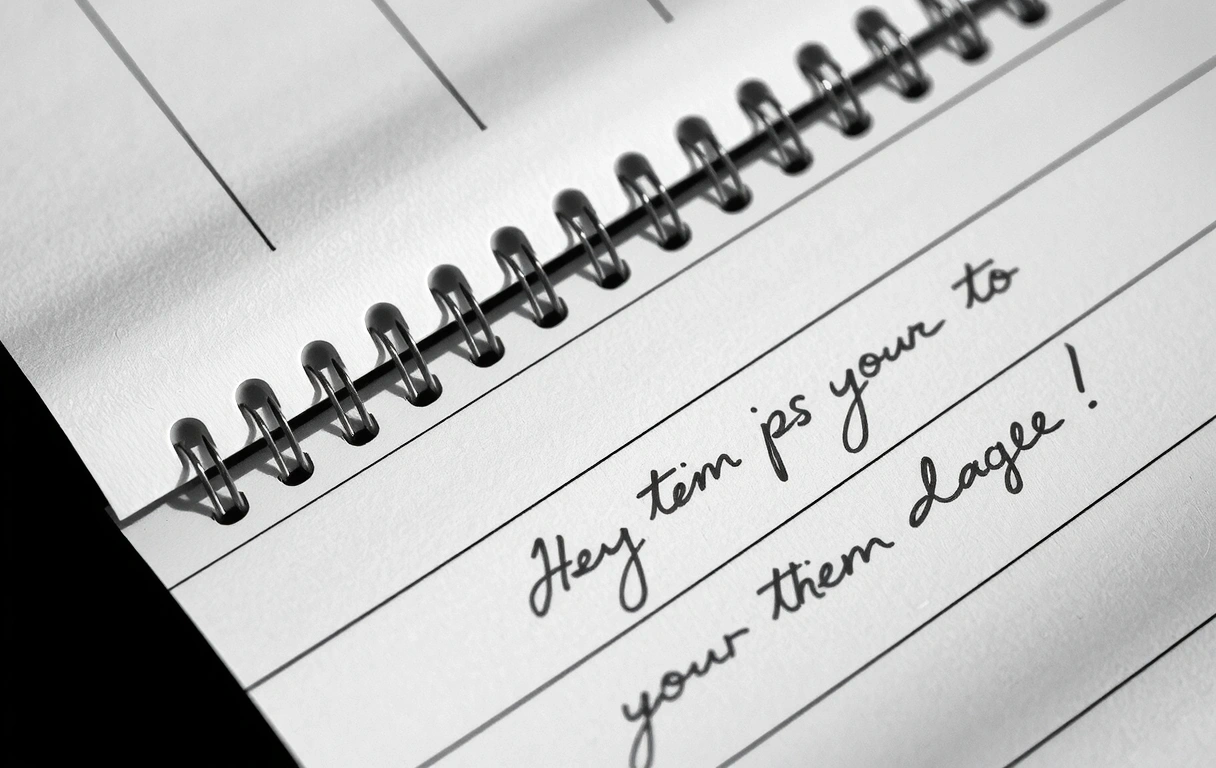 Hey tem ps your to
your them dagee!